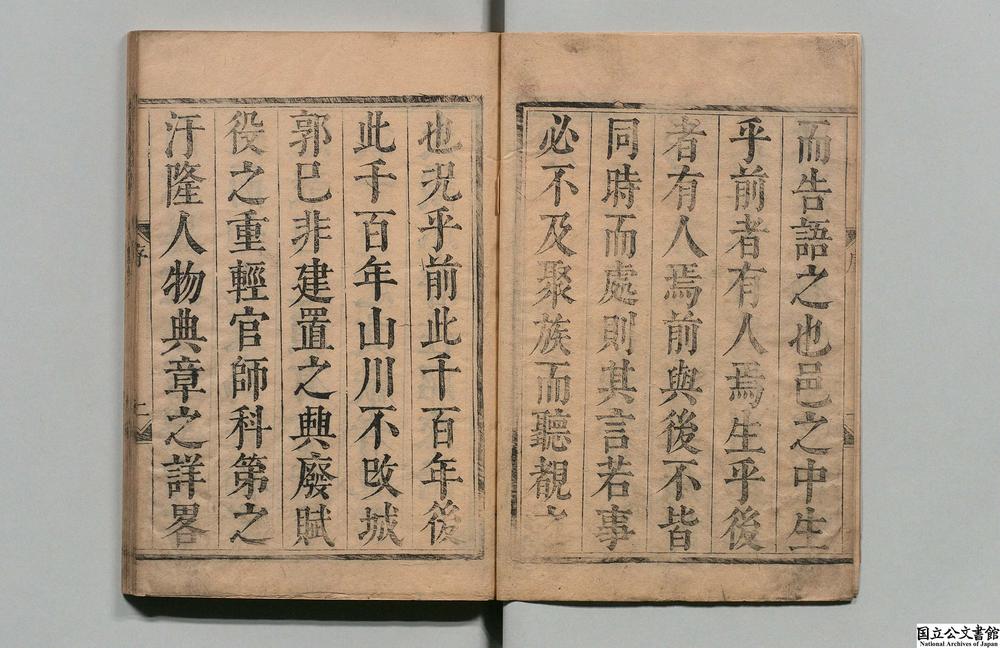 而告語之也邑之中生
乎前者有人焉生乎後
者有人焉前與後不皆
同時而處則其言若事
必不及聚族而聽覩之
也況乎前此千百年後
此千百年山川不改城
郭已非建置之興廢賦
役之重輕官師科第之
汙隆人物典章之詳畧
序
國立公文書館
National Archives of Japan